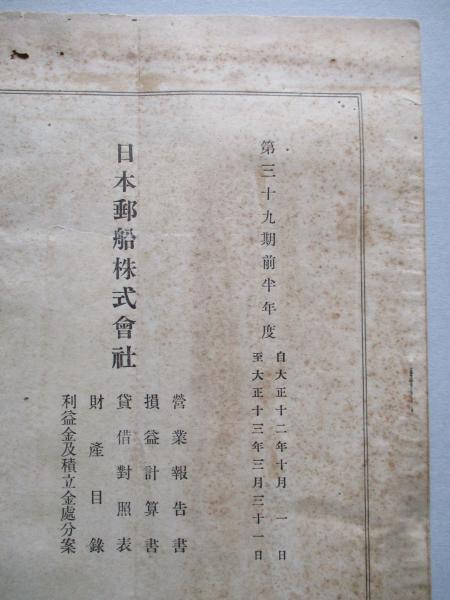 第三十九期前半年度
自大正十二年十月一日
至大正十三年三月三十一日
日本郵船株式會社
營業報告書
損益計算書
貸借對照表
財產目錄
利益金及積立金處分案